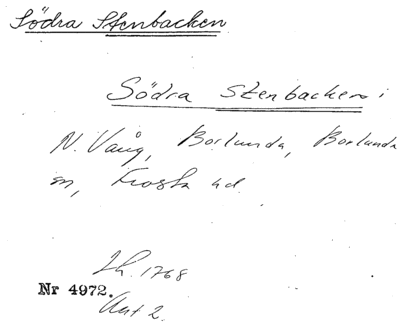 Södra Stenbacken
Södra Stenbacken i
N. Vång, Borlunda, Borlunda
sn, Frosta hd.
Lh. 1768
Nr 4972.
Akt 2.